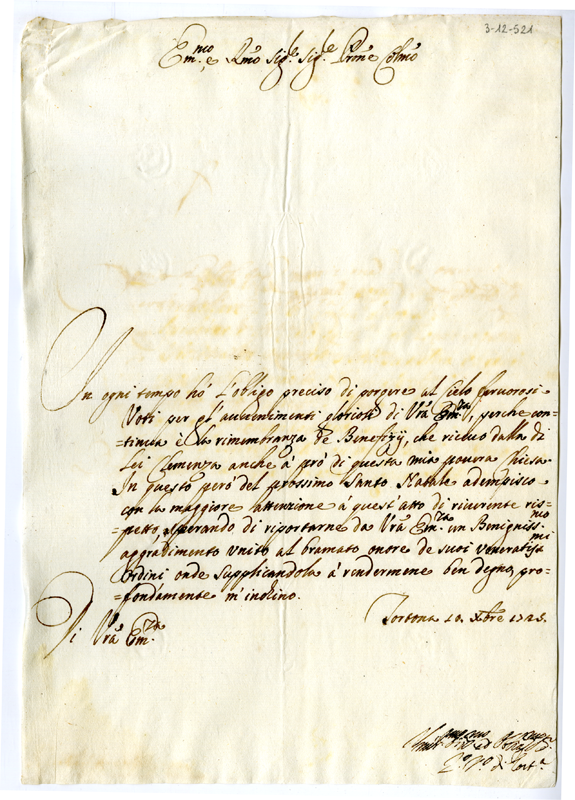 3-12-521
Em.mo e Rmo Sigr. Sigr. Prone Colmo
In ogni tempo hò l'obligo preciso di porgere al Cielo fervorosi
Voti per gl'avvenimenti gloriosi di Vrà Em.za, perche con-
-tinua è la rimembranza de Benefizij, che ricevo dalla di
Lei Clemenza anche à prò di questa mia povera Chiesa.
In questo però del prossimo Santo Natale adempisco
con la maggiore attenzione à quest'atto di riverente ris-
-petto, sperando di riportarne da Vrà Em.za un Benigniss.mo
aggradimento unito al bramato onore de suoi venerabiss.mi
Ordini onde supplicandola à rendermene ben degno, pro-
-fondamente m'inchino.
Di Vrà Em.za
Tortona 10. Xbre 1725.
di Tort.a